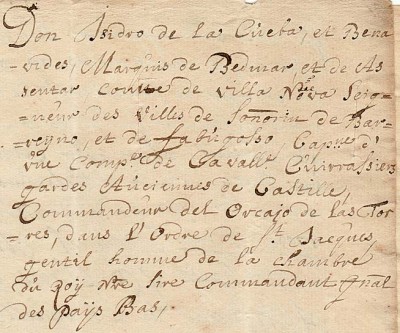 Don Isidro de La Cueba, et Bena
=vides, Marquis de Bedmar, et de As
sentar Comte de Villa Nova Seig
=neur des Villes de de Bar
et de Cappne d'
vne Compe de Cavallie Cuirrassiers
gardes Anciennes de Castille,
Commandeur del Orcajo de las Tor
=res, dans l'Ordre de St. Jacques,
gentil homme de la chambre
du Roy Nre Sire Commandant gnal
des Pays Bas,